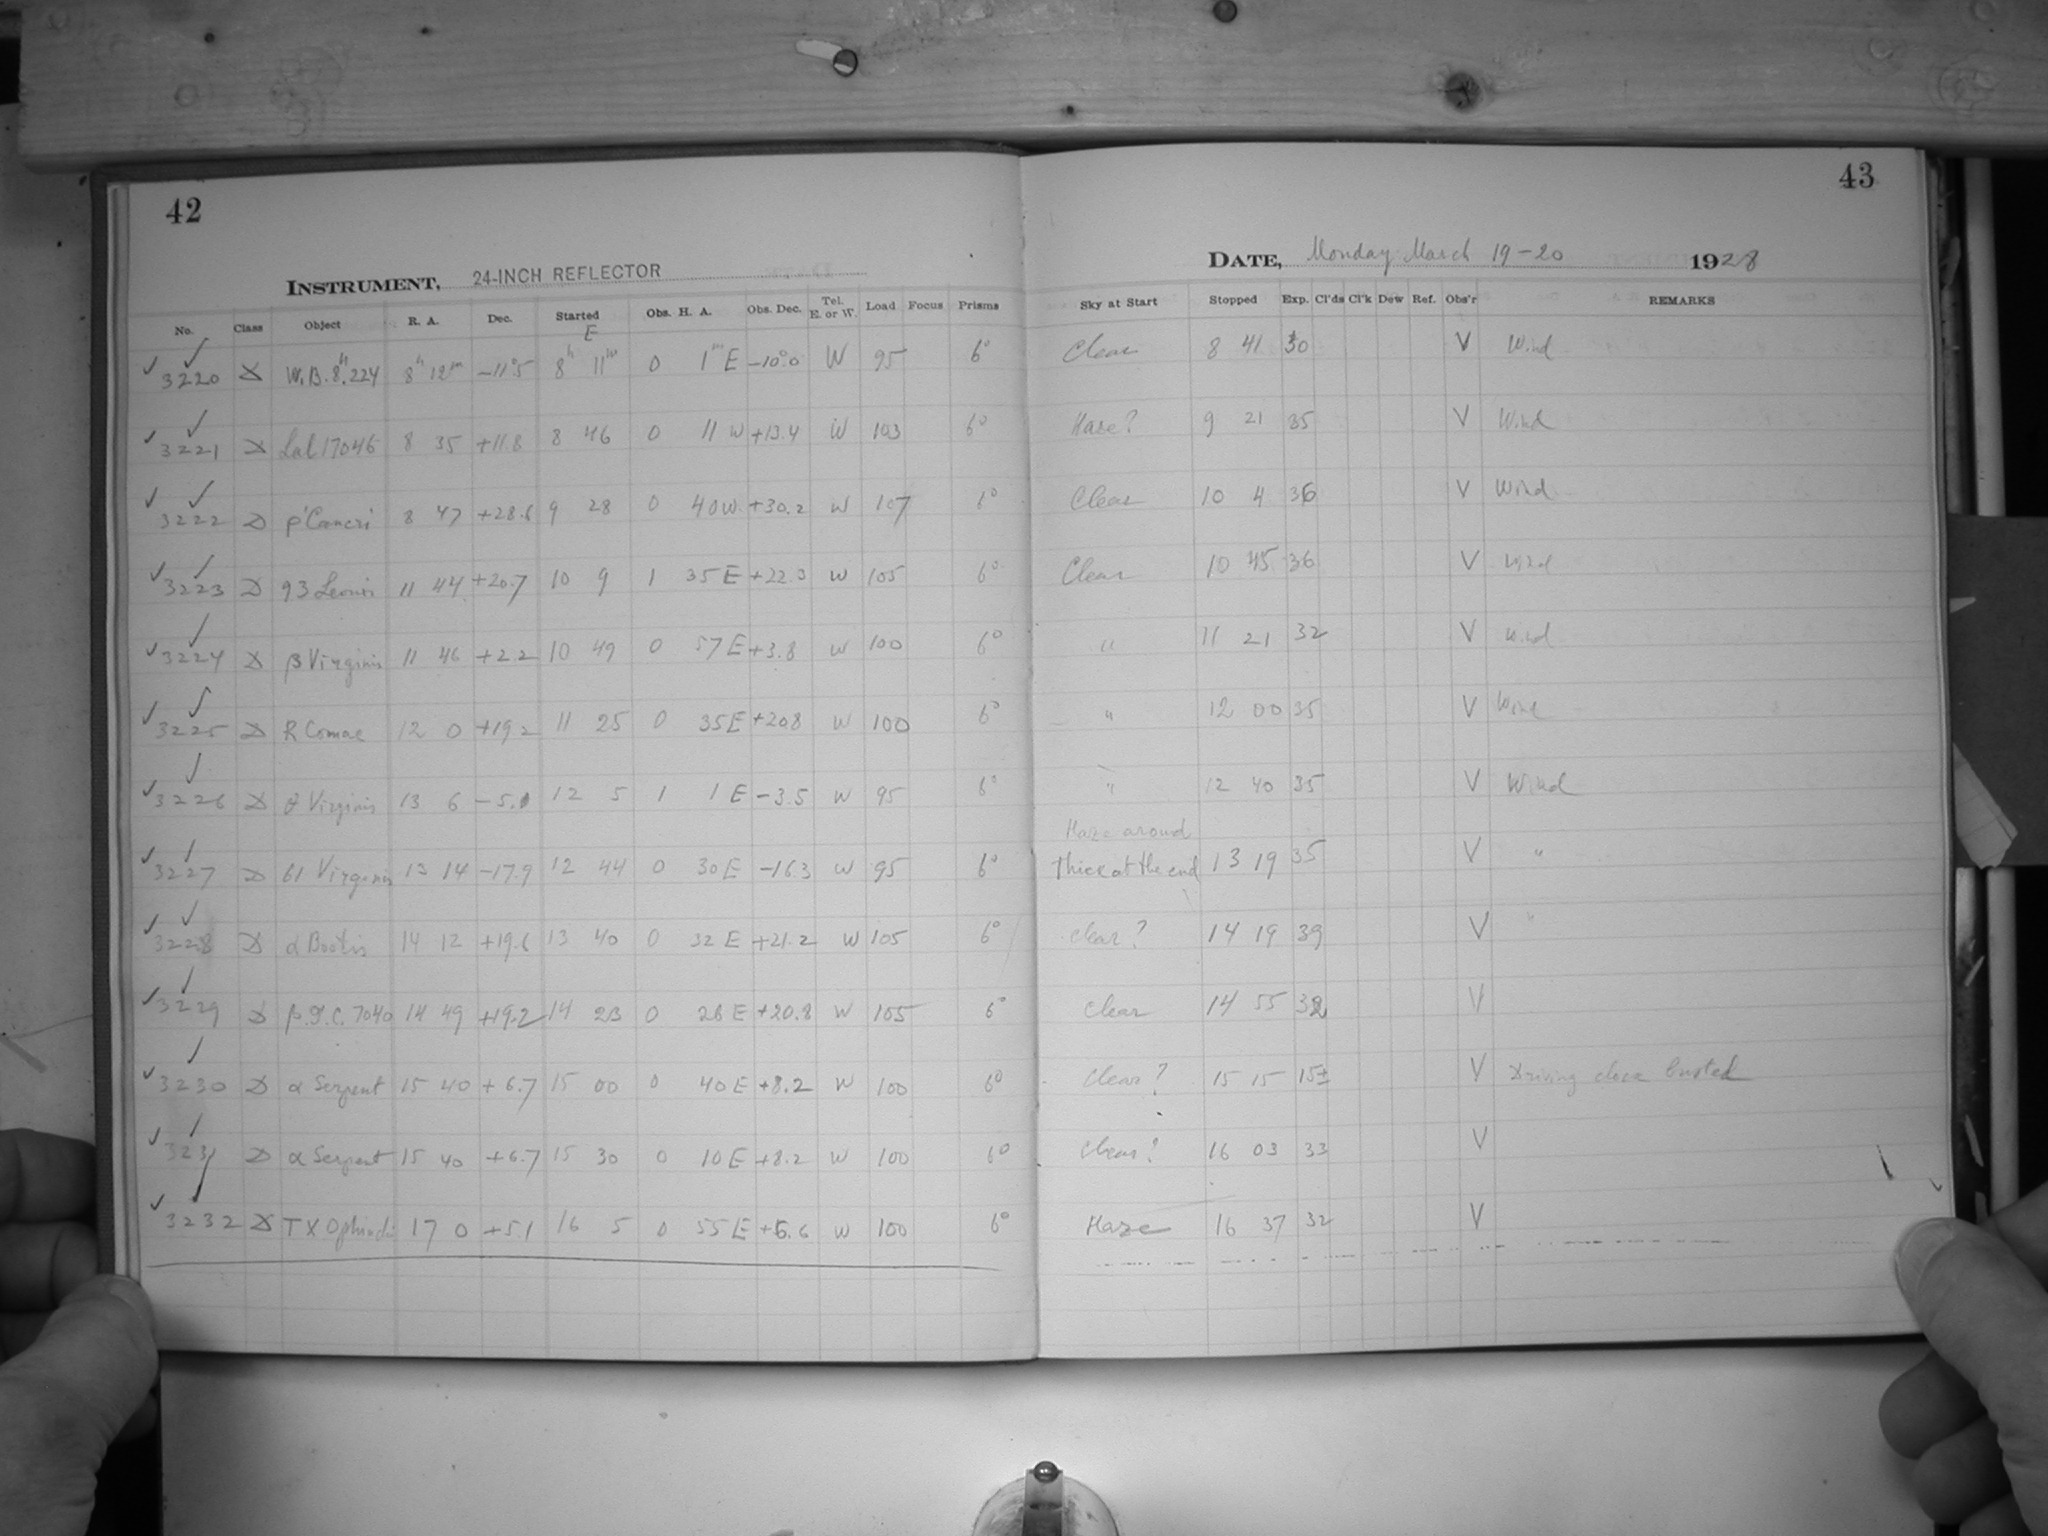 42
INSTRUMENT, 24-INCH REFLECTOR
No. Class Object R. A. Dec. Started Obs. H. A. Obs. Dec. Tel. E. or W. Load Focus Prisms
E
3220 D W.B. 8h.224 8h 12m -11°5 8h 11m 0 1m E -10°0 W 95 6°
3221 D Lal 17046 8 35 +11.8 8 46 0 11 W +13.4 W 103 6°
3222 D ρ'Cancri 8 47 +28.6 9 28 0 40 W +30.2 W 107 6°
3223 D 93 Leonis 11 44 +20.7 10 9 1 35 E +22.3 W 105 6°
3224 D β Virginis 11 46 +2.2 10 49 0 57 E +3.8 W 100 6°
3225 D R Comae 12 0 +19 2 11 25 0 35 E +208 W 100 6°
3226 D θ Virginis 13 6 -5.1 12 5 1 1 E -3.5 W 95 6°
3227 D 61 Virginis 13 14 -17.9 12 44 0 30 E -16.3 W 95 6°
3228 D α Bootis 14 12 +19.6 13 40 0 32 E +21.2 W 105 6°
3229 D β.G.C. 7040 14 49 +19.2 14 23 0 26 E +20.8 W 105 6°
3230 D α Serpent 15 40 +6.7 15 00 0 40 E +8.2 W 100 6°
3231 D α Serpent 15 40 +6.7 15 30 0 10 E +8.2 W 100 6°
3232 D TX Ophiuchi 17 0 +5.1 16 5 0 55 E +6.6 W 100 6°
43
DATE, Monday March 19-20 1928
Sky at Start Stopped Exp. Cl'ds Cl'k Dew Ref. Obs'r REMARKS
Clear 8 41 30 V Wind
Haze? 9 21 35 V Wind
Clear 10 4 36 V Wind
Clear 10 45 36 V Wind
" 11 21 32 V Wind
" 12 00 35 V Wind
" 12 40 35 V Wind
Haze around
Thick at the end 13 19 35 V "
Clear? 14 19 39 V "
Clear 14 55 32 V
Clear? 15 15 15± V Driving clock busted
Clear? 16 03 33 V
Haze 16 37 32 V